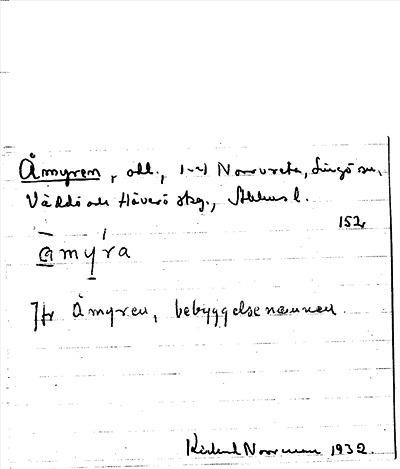 Åmyren, odl., 1-4 Norrvreta, Singö sn,
Väddö och Häverö skg., Sthlms l.
152
amýra
Jfr Åmyren, bebyggelsenamnen.
Norrman 1932.